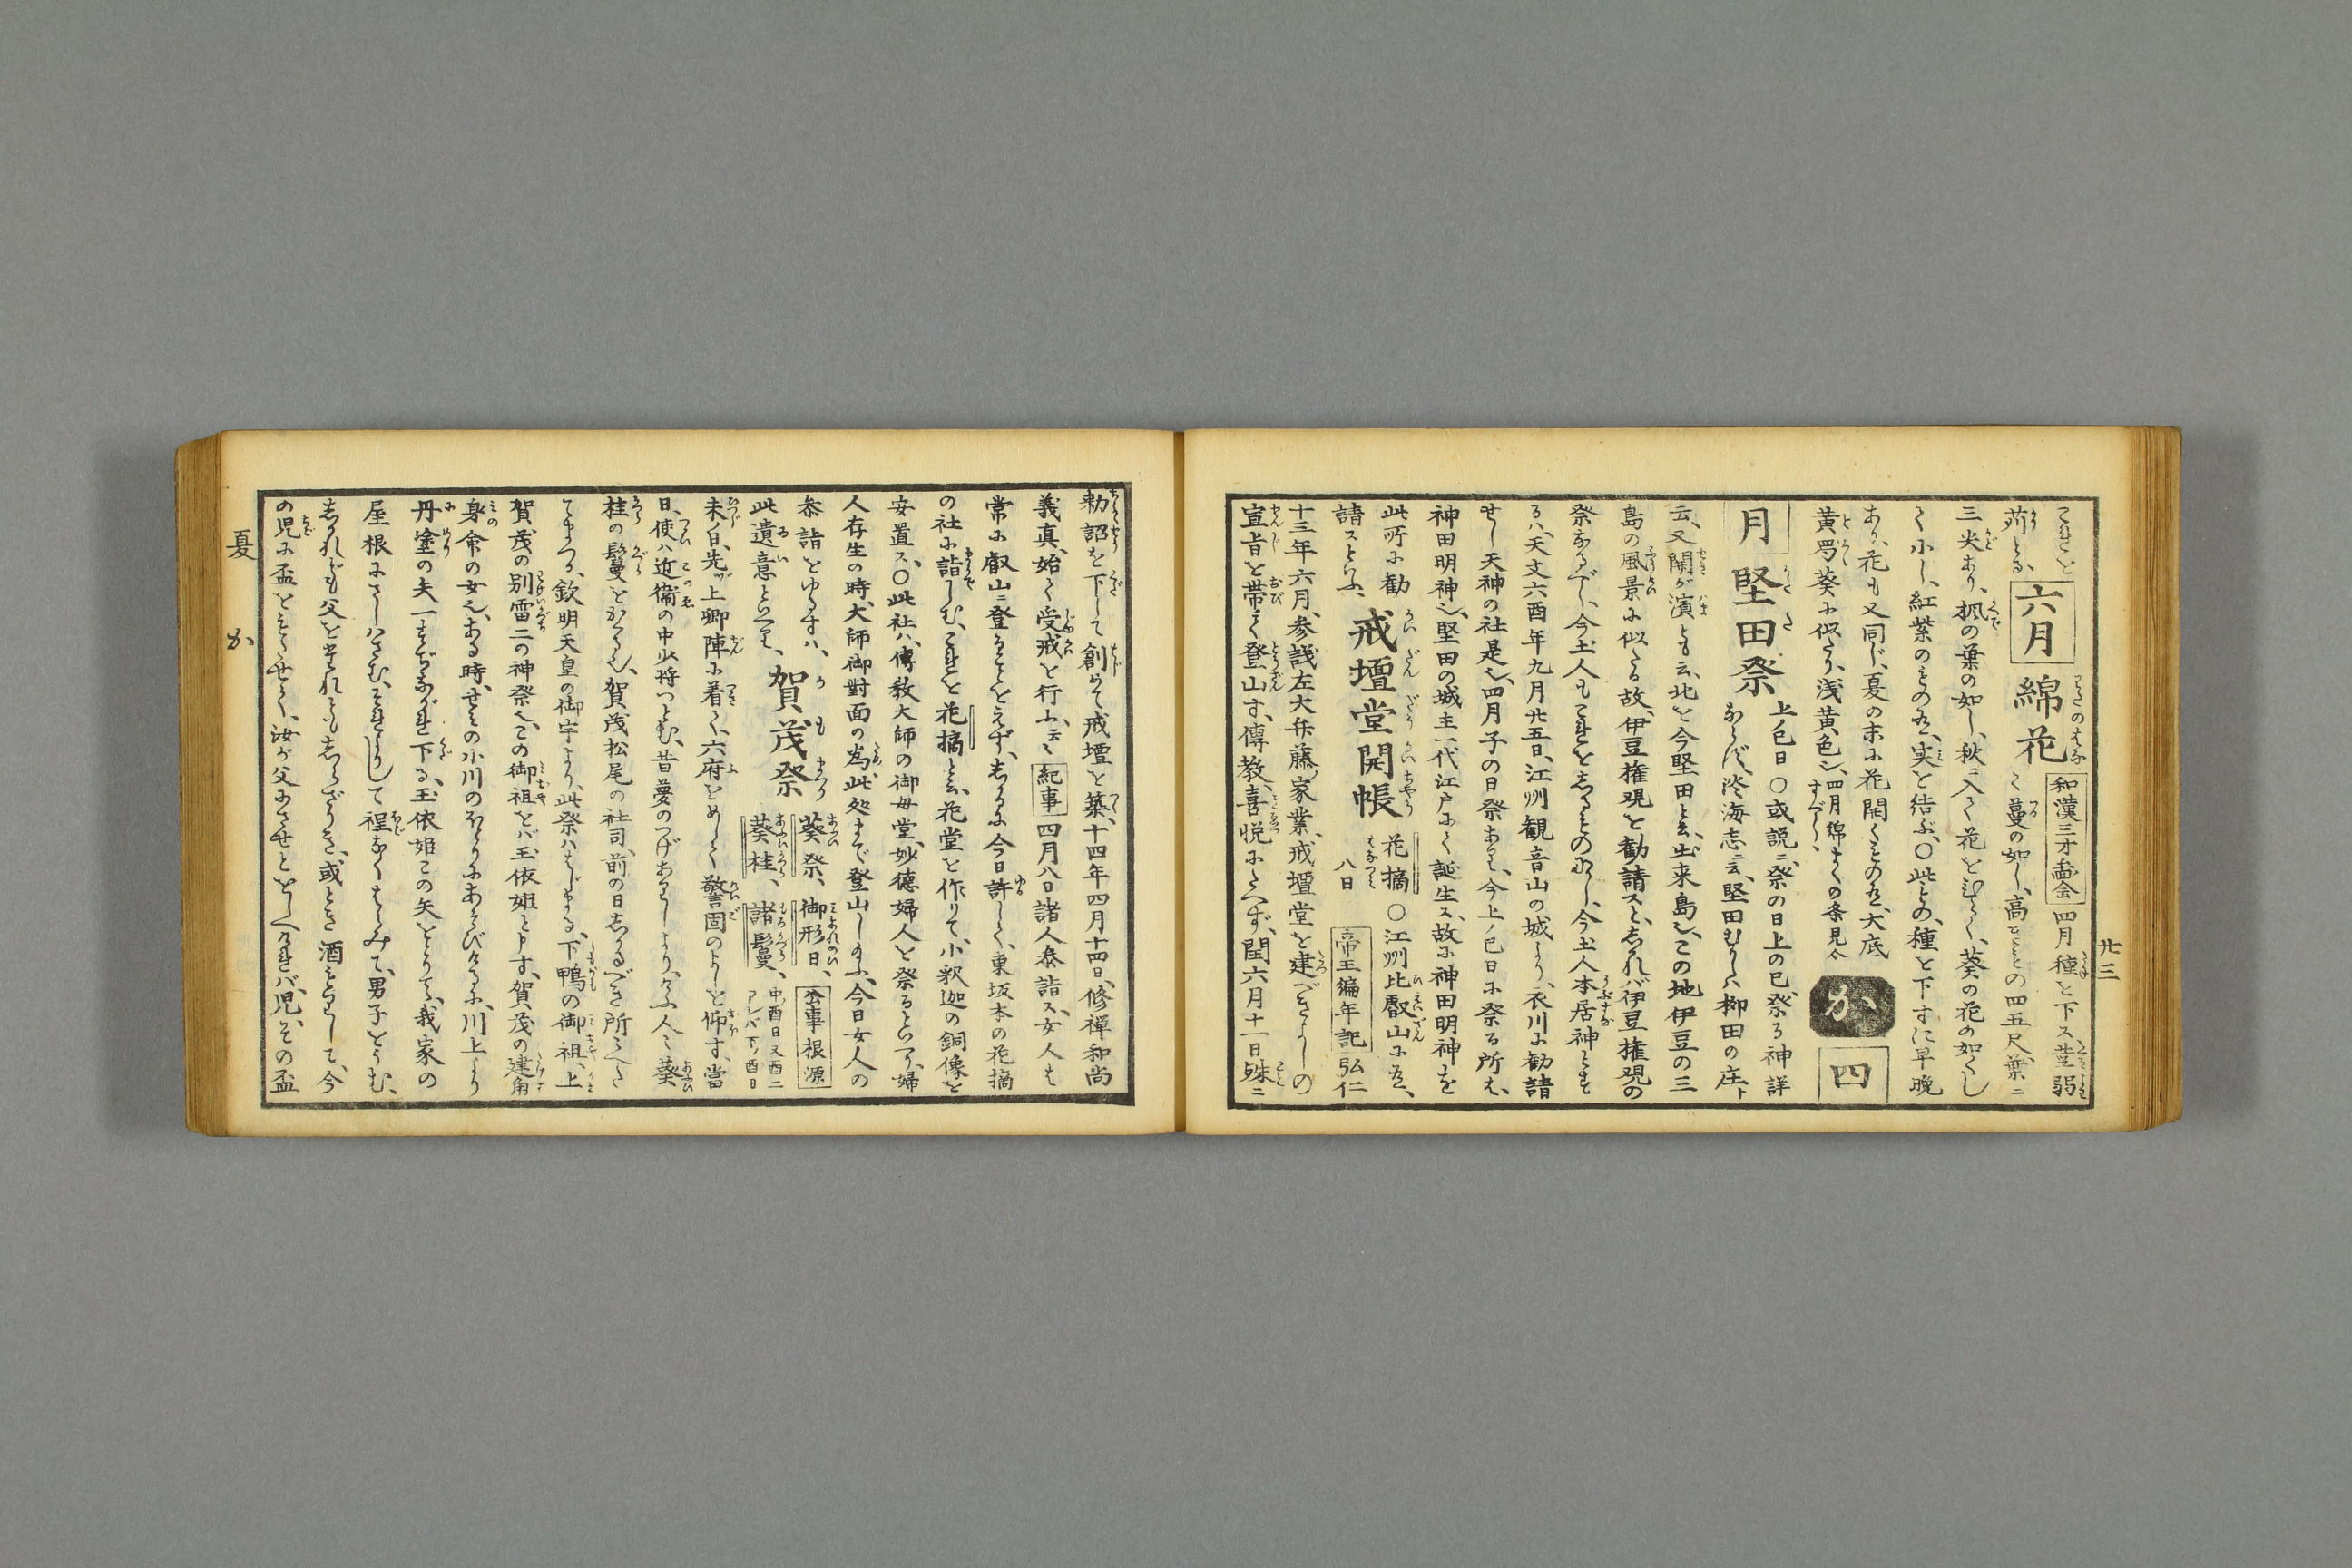 廿三
これを
苅とる、
六月
綿花
わたのはな
和漢三才啚会 四月種を下ス茎弱
く蔓の如し、高きもの四五尺、葉ニ
三尖あり、楓の葉の如し、秋ニ入て花をひらく、葵の花の如くし
て小し、紅紫のもの有、実を結ぶ、〇此もの、種を下すに早晩
あり、花も又同じ、夏の末に花開くもの有、大底
黄蜀葵に似たり、浅黄色也、四月綿まくの条見合すべし、
か
四
月
堅田祭
かたた
上ノ巳日 〇或説ニ、祭の日上の巳、祭る神詳
ならず、淡海志ニ云、堅田むかしハ柳田の庄ト
云、又関が濱とも云、北を今堅田と云、出来島也、この地伊豆の三
島の風景に似たる故、伊豆権現を勧請スと、しかれバ伊豆権現の
祭なるべし、今土人もこれをしるもの少し、今土人本居神とす
るハ、天文六酉年九月廿五日、江州観音山の城より、衣川に勧請
せし天神の社是也、四月子の日祭あり、今上ノ巳日に祭る所は、
神田明神也、堅田の城主一代江戸にて誕生ス、故に神田明神を
此所に勧
請スといふ、
戒壇堂開帳
かいだんだうかいちやう
花摘
はなつみ
八日
〇江州比叡山に有、
帝王編年記 弘仁
十三年六月、参議左大弁藤ノ家業、戒壇堂を建べきよしの
宣旨を帯て登山す、傳教、喜悦にたへず、閏六月十一日殊ニ
勅詔を下して創めて戒壇を築、十四年四月十四日、修禅和尚
義真、始て受戒を行ふ、云々 紀事 四月八日諸人参詣ス、女人は
常に叡山ニ登ることをえず、しかるに今日許して、東坂本の花摘
の社に詣しむ、これを花摘と云、花堂を作りて、小釈迦の銅像を
安置ス、〇此社ハ、傳教大師の御母堂、妙徳婦人を祭るといへり、婦
人存生の時、大師御對面の為、此処まで登山し給ふ、今日女人の
参詣をゆるすハ、
此遺意といへり、
賀茂祭
かもまつり
葵祭、御形日、
葵桂、諸鬘、
公事根源
中ノ酉日又酉二
アレバ下ノ酉日
未ノ日、先ヅ上卿陣に着て、六府をめして警固のよしを仰す、當
日、使ハ近衛の中少将つとむ、昔夢のつげありしより、けふ人々葵
桂の鬘をかくる也、賀茂松尾の社司、前の日しかるべき所々へた
てまつる、欽明天皇の御宇より、此祭ハはじまる、下鴨の御祖、上
賀茂の別雷二の神祭也、この御祖をバ玉依姫と申す、賀茂の建角
身命の女也、ある時、せみの小川のほとりにあそびけるに、川上より
丹塗の矢一すぢながれ下る、玉依姫この矢をとりて、我家の
屋根にさしはさむ、それよりして程なくはらみて、男子をうむ、
しかれども父を誰れともしらざりき、或とき酒をつくりて、今
の児に盃をもたせて、汝が父にさせとをしへければ、児、その盃
夏
か